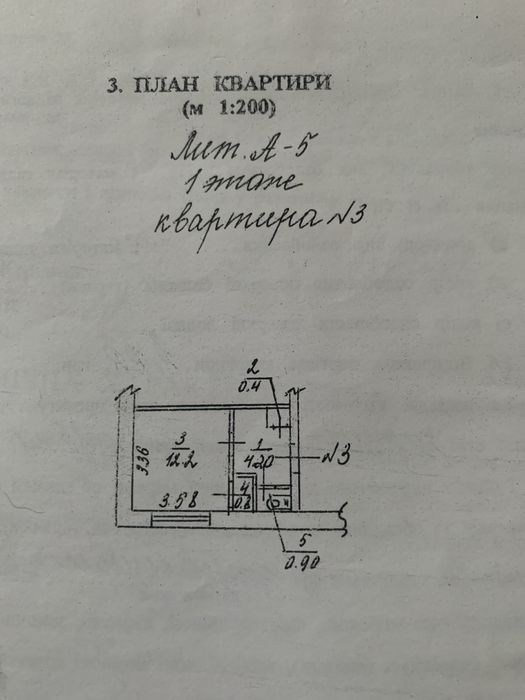 3. ПЛАН КВАРТИРИ
(м 1:200)
Лит. А-5
1 этаж
квартира №3
2
0.4
3
12.2
1
4.20
№3
3.36
3.58
4
0.8
5
0.90